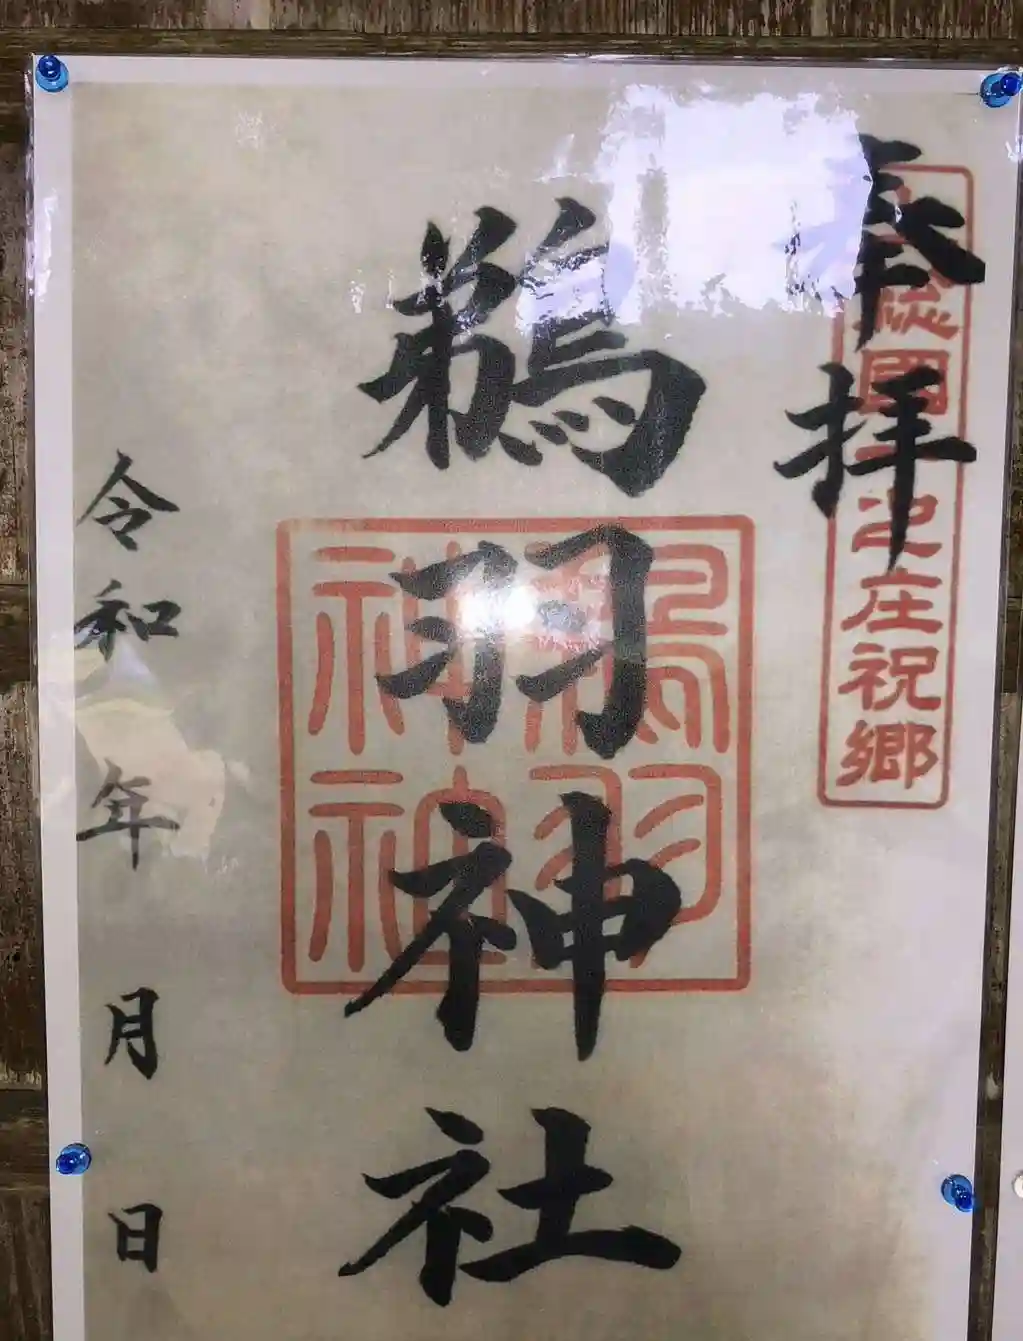 奉拝
総國一之庄祝郷
鵜羽神社
鵜羽神社
令和 年 月 日